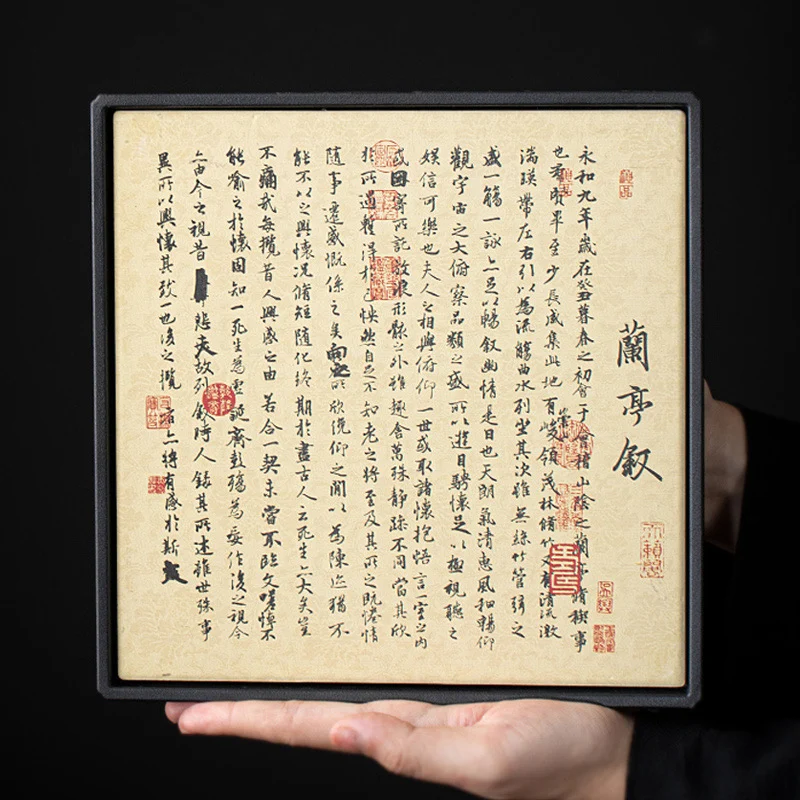 蘭亭叙
永和九年歲在癸丑暮春之初會于會稽山陰之蘭亭脩稧事
也羣賢畢至少長咸集此地有崇山峻領茂林脩竹又有清流激
湍瑛帶左右引以為流觴曲水列坐其次雖無絲竹管弦之
盛一觴一詠亦足以暢叙幽情是日也天朗氣清惠風和暢仰
觀宇宙之大俯察品類之盛所以遊目騁懷足以極視聽之
娛信可樂也夫人之相與俯仰一世或取諸懷抱悟言一室之內
或因寄所託放浪形骸之外雖趣舍萬殊靜躁不同當其欣
於所遇蹔得於己怏然自足不知老之將至及其所之既惓情
隨事遷感慨係之矣向之所欣俛仰之閒以為陳迹猶不
能不以之興懷況脩短隨化終期於盡古人云死生亦大矣豈
不痛哉每攬昔人興感之由若合一契未嘗不臨文嗟悼不
能喻之於懷固知一死生為虛誕齊彭殤為妄作後之視今
亦由今之視昔悲夫故列叙時人錄其所述雖世殊事
異所以興懷其致一也後之攬者亦將有感於斯文